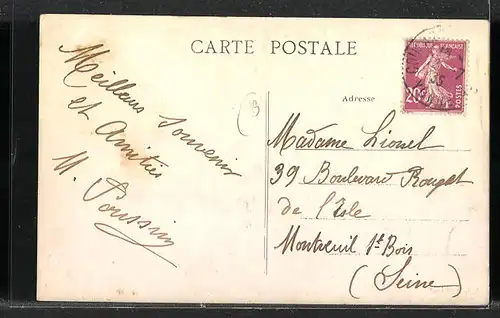 CARTE POSTALE
Meilleurs souvenirs
et Amitiés
M. Poussin
Adresse
REPUBLIQUE FRANÇAISE
20c
POSTES
Madame Lionel
39 Boulevard Rouget
de l'Isle
Montreuil s/s Bois
(Seine)